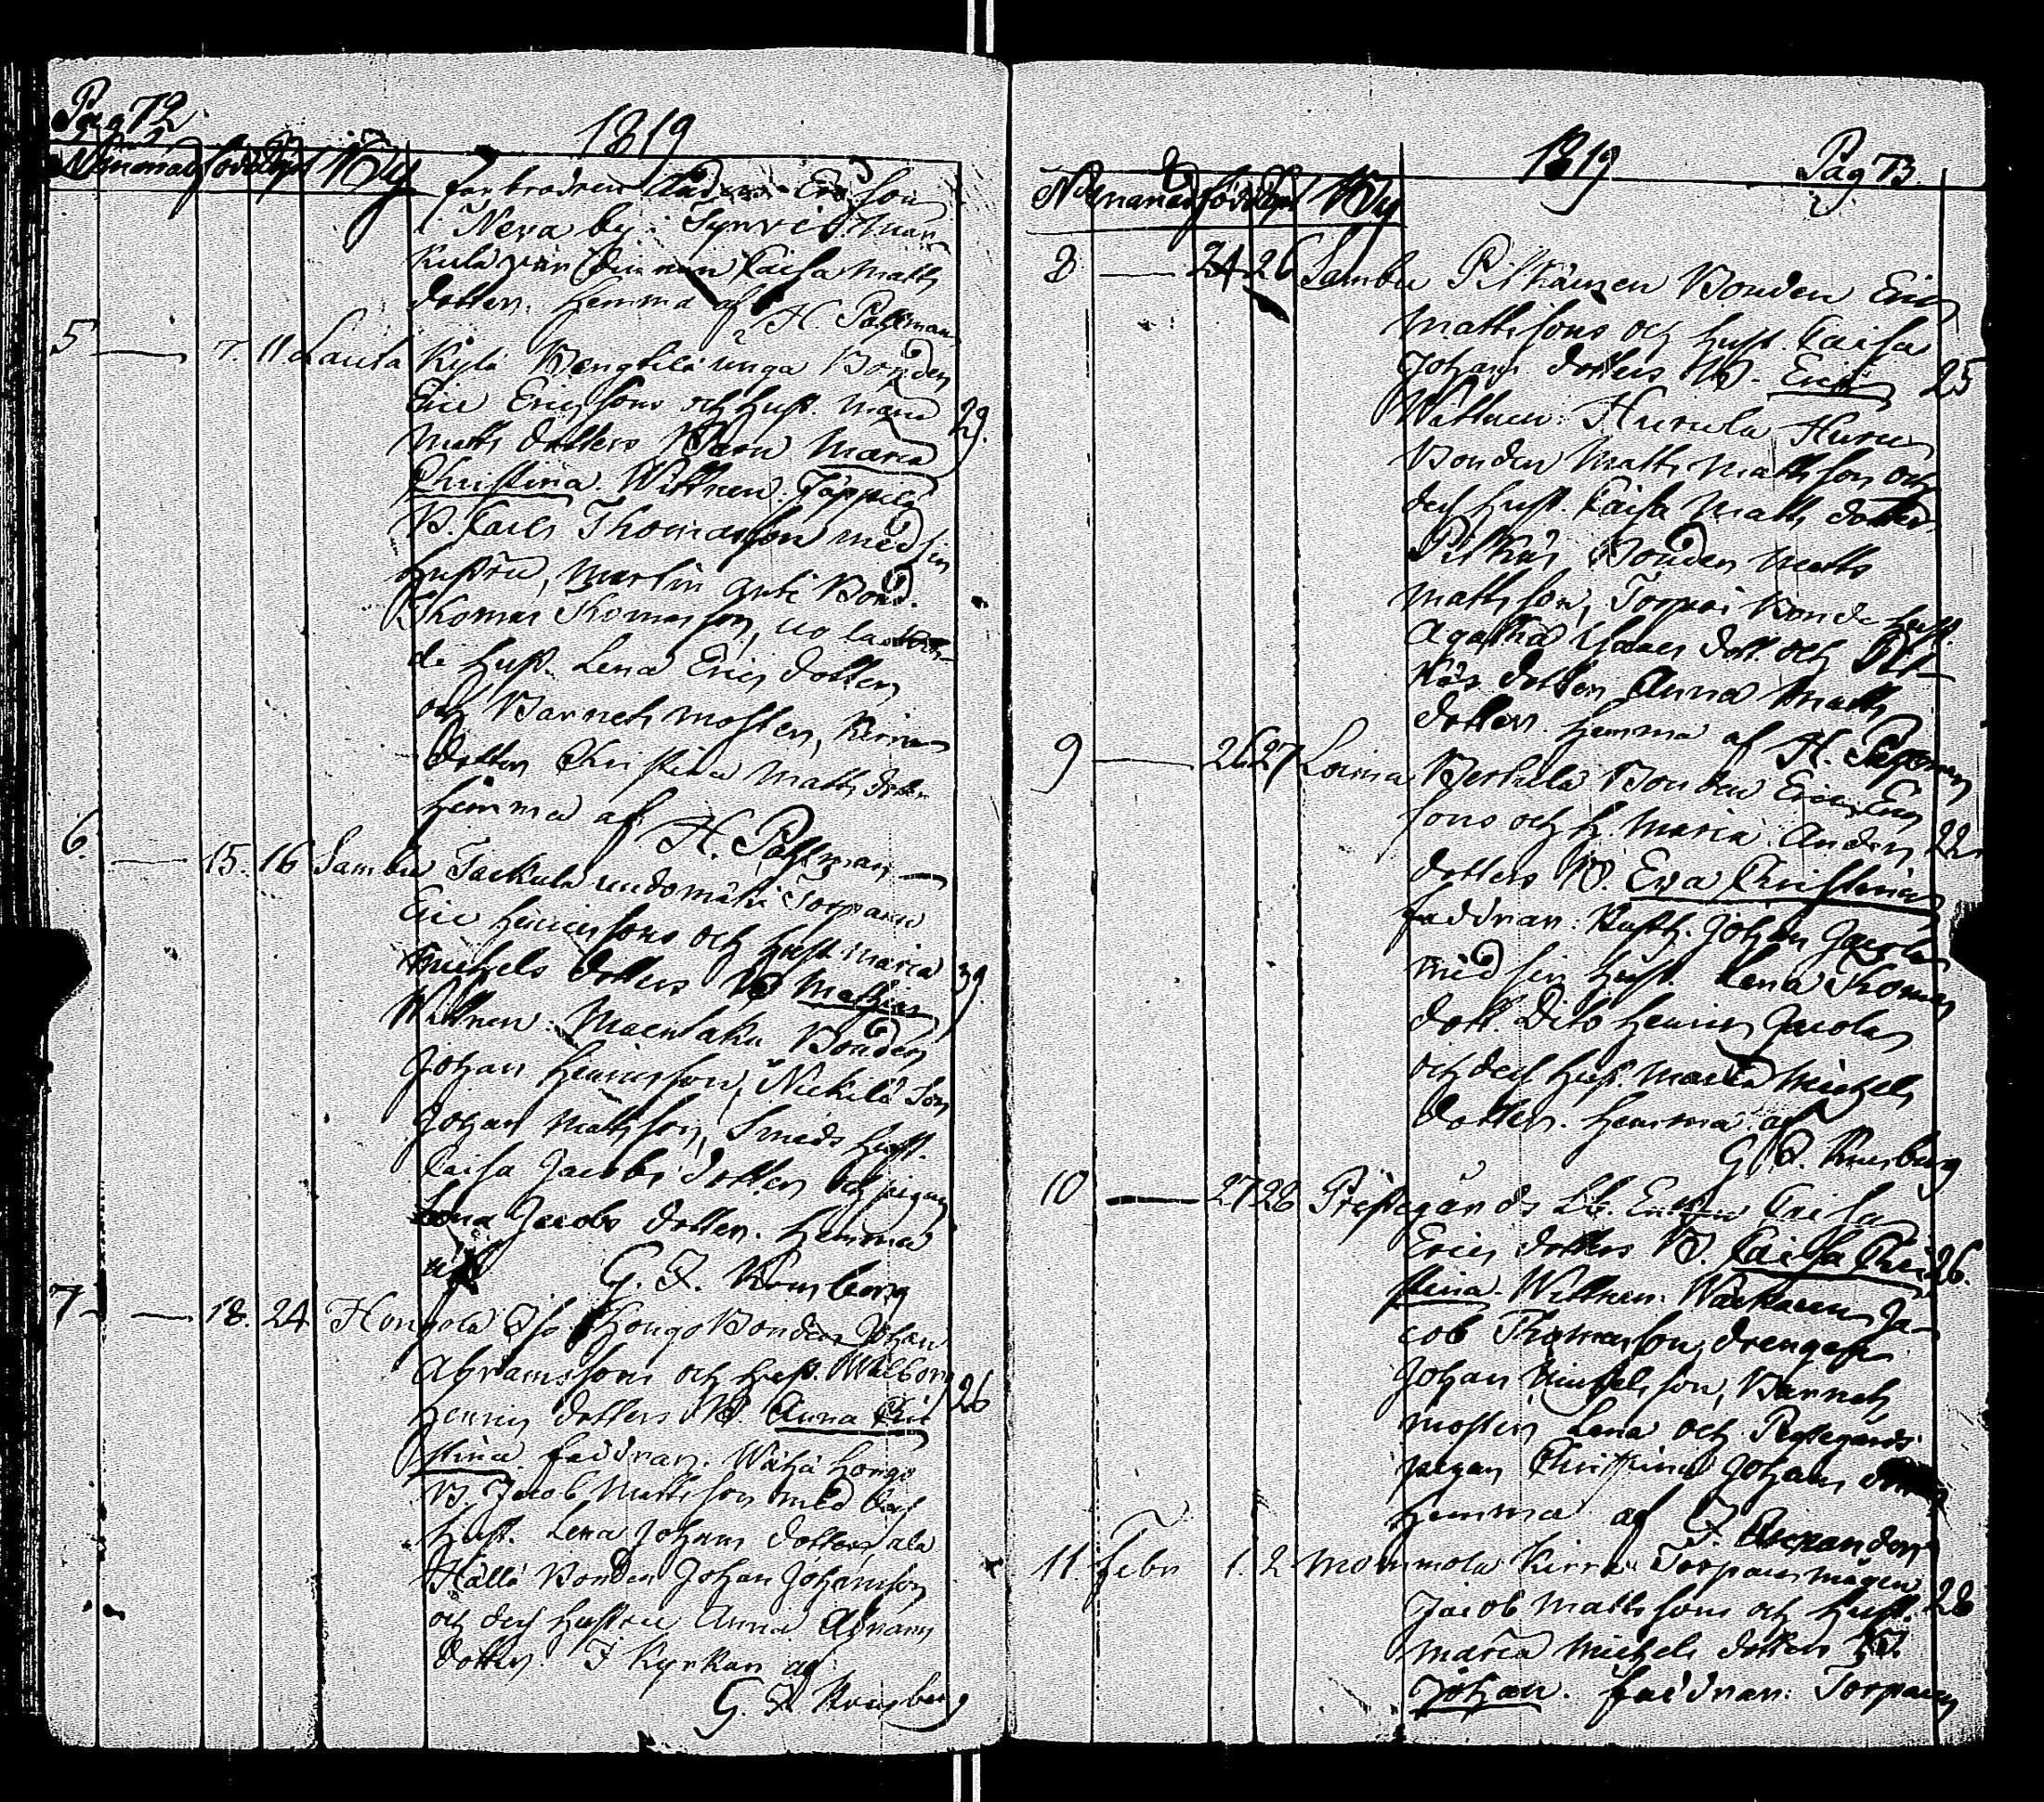 Pag 72
1819
N månad född döpt By
farbrodren Anders Ericsson
i Neva by i Tyrvis
dotter. Hemma af
H. Pahlman
5 — 7. 11 Lauta Kylä Bengtilä unga Bonden
Eric Ericssons och Hust. Maria 29.
Matts dotters Barn Maria
Christina. Wittnen. Jäppilä
B. Carls Thomasson med sin
Hustru, Martin Anti Bond.
Thomas Thomasson,
de Hust. Lena Erics dotter
och Barnets moster, Kirra
dotter Christina Matts dotter
Hemma af
H. Pahlman
6. — 15. 16 Sambu Jackula Torparen
Eric Henricssons och Hust Maria
Michels dotters B Mathias 39.
Wittnen. Bonden
Johan Henricsson, Nickilä Son
Johan Mattsson, Smeds Hust.
Caisa Jacobs dotter och pigan
Lena Jacobs dotter. Hemma
af
G. F. Konsberg
7 — 18. 24 Hongola Iso Hongo Bonden Johan
Abramssons och Hust. Walborg 26
Henrics dotters B. Anna Chri
stina. Faddrar. Wähä Hongo
B Jacob Mattsson med des
Hust. Lena Johans dotter, ala
Hällä Bonden Johan Johansson
och des Hustru Anna Abrams
dotter. I Kyrkan af
G. F. Konsberg
1819 Pag 73.
N månad född döpt By
8 — 24 26 Sambu Pitkäinen Bonden Eric
Mattssons och Hust. Caisa
Johans dotters B. Eric 25
Wittnen: Hurula Huru
Bonden Matts Mattsson och
des Hust. Caisa Matts dotter
Pitkäs Bonden Matts
Mattsson, Torpari Bonde Hust.
Agatha dott. och Pit-
käs dotter Anna Matts
dotter. Hemma af H. Pahlman
9 — 26 27 Loima Bertula Bonden Eric Erics
sons och H. Maria Anders 22.
dotters B. Eva Christina
Faddrar. Rusth. Johan Jacobs
med sin Hust. Lena Thomas
dott. Dito Henric Jacobs
och des Hust. Maria Michels
dotter. Hemma af
G. F. Konsberg
10 — 27 28 Prestegårds Lb. Enkan Caisa
Erics dotters B. Caisa Chri 26.
stina. Wittnen. Ja-
cob Thomasson, drengen
Johan Michelsson, Barnets
moster Lena och Prestegårds
pigan Christina Johans dotter
Hemma af
11. Febr 1. 2 Mommola Kirra Torparemågen
Jacob Mattssons och Hust. 28
Maria Michels dotters B.
Johan. Faddrar: Torparen